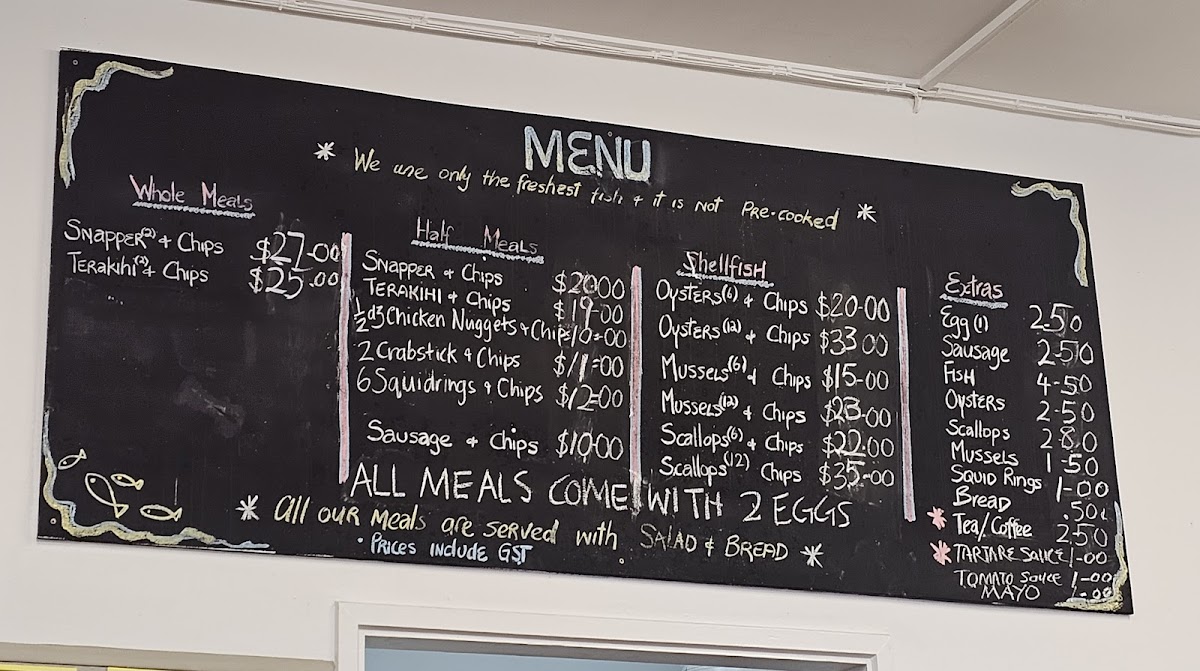 MENU
* We use only the freshest fish & it is not Pre-cooked *
Whole Meals
Snapper(2) & Chips $27-00
Terakihi(2) & Chips $25.00
Half Meals
Snapper & Chips $2000
Terakihi & Chips $19-00
½ dz Chicken Nuggets & Chips 10=00
2 Crabstick & Chips $11=00
6 Squidrings & Chips $12=00
Sausage & Chips $1000
Shellfish
Oysters(6) & Chips $20-00
Oysters(12) & Chips $33 00
Mussels(6) & Chips $15-00
Mussels(12) & Chips $23-00
Scallops(6) & Chips $22-00
Scallops(12) Chips $35-00
Extras
Egg (1) 2-50
Sausage 2-50
Fish 4-50
Oysters 2-50
Scallops 2 80
Mussels 1-50
Squid Rings 1-00
Bread .50c
* Tea/Coffee 2-50
* TARTARE SAUCE 1-00
TOMATO Sauce 1-00
MAYO 1-00
ALL MEALS COME WITH 2 EGGS
* All our Meals are served with Salad & Bread *
• Prices include GST